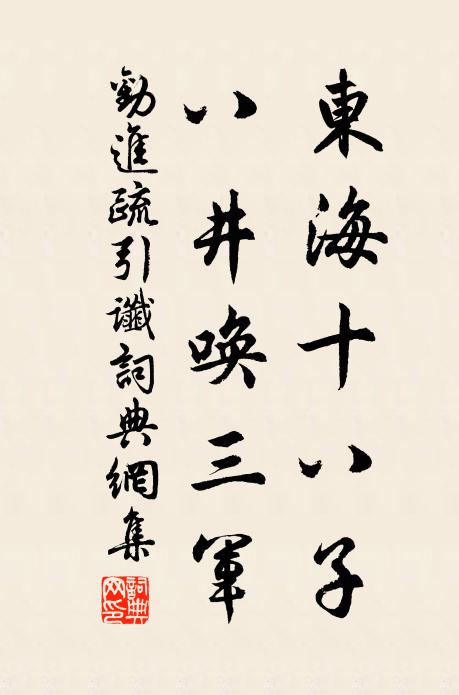 東海十八子
八井喚三軍
勸進疏引讖詞典網集
詞典網印